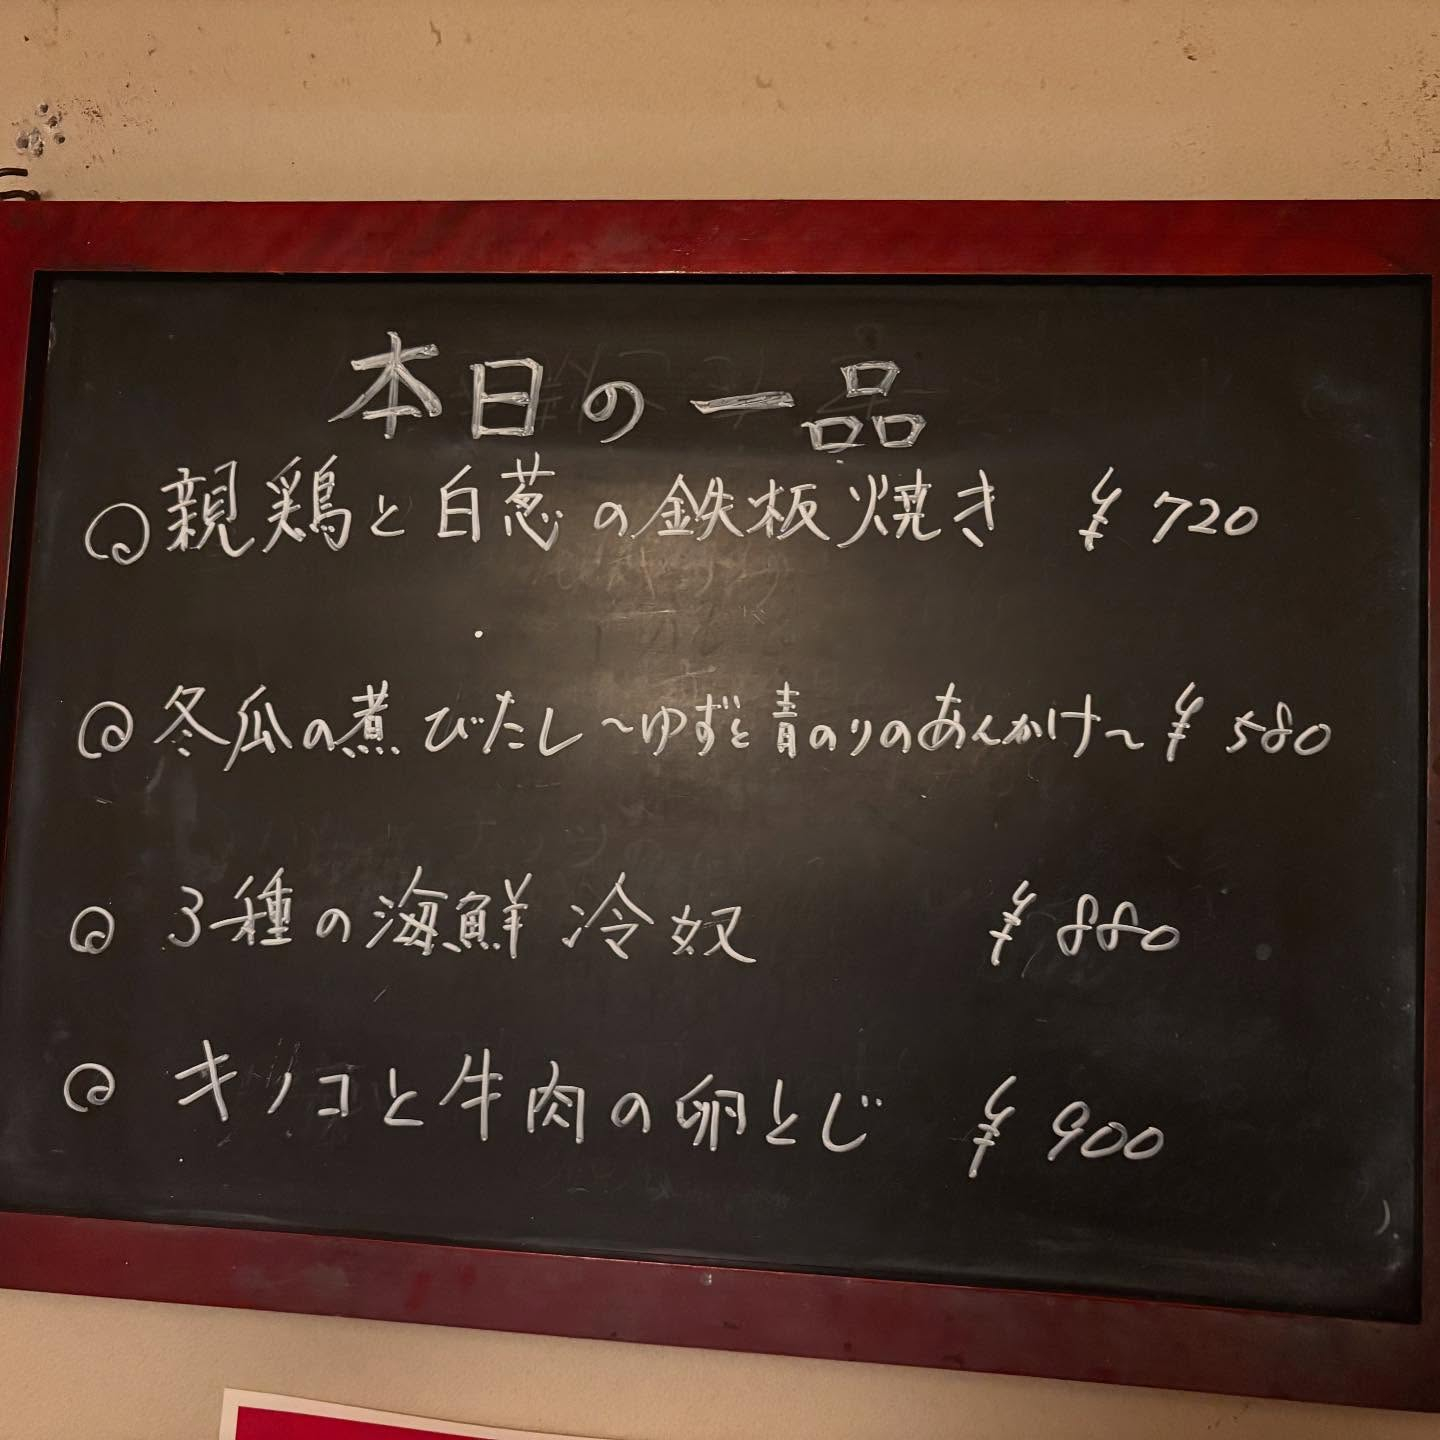 本日の一品
親鶏と白葱の鉄板焼き ¥720
冬瓜の煮びたし～ゆずと青のりのあんかけ～ ¥580
3種の海鮮冷奴 ¥880
キノコと牛肉の卵とじ ¥900